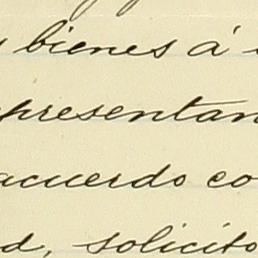 bienes á
presentan
acuerdo co
d, solicito